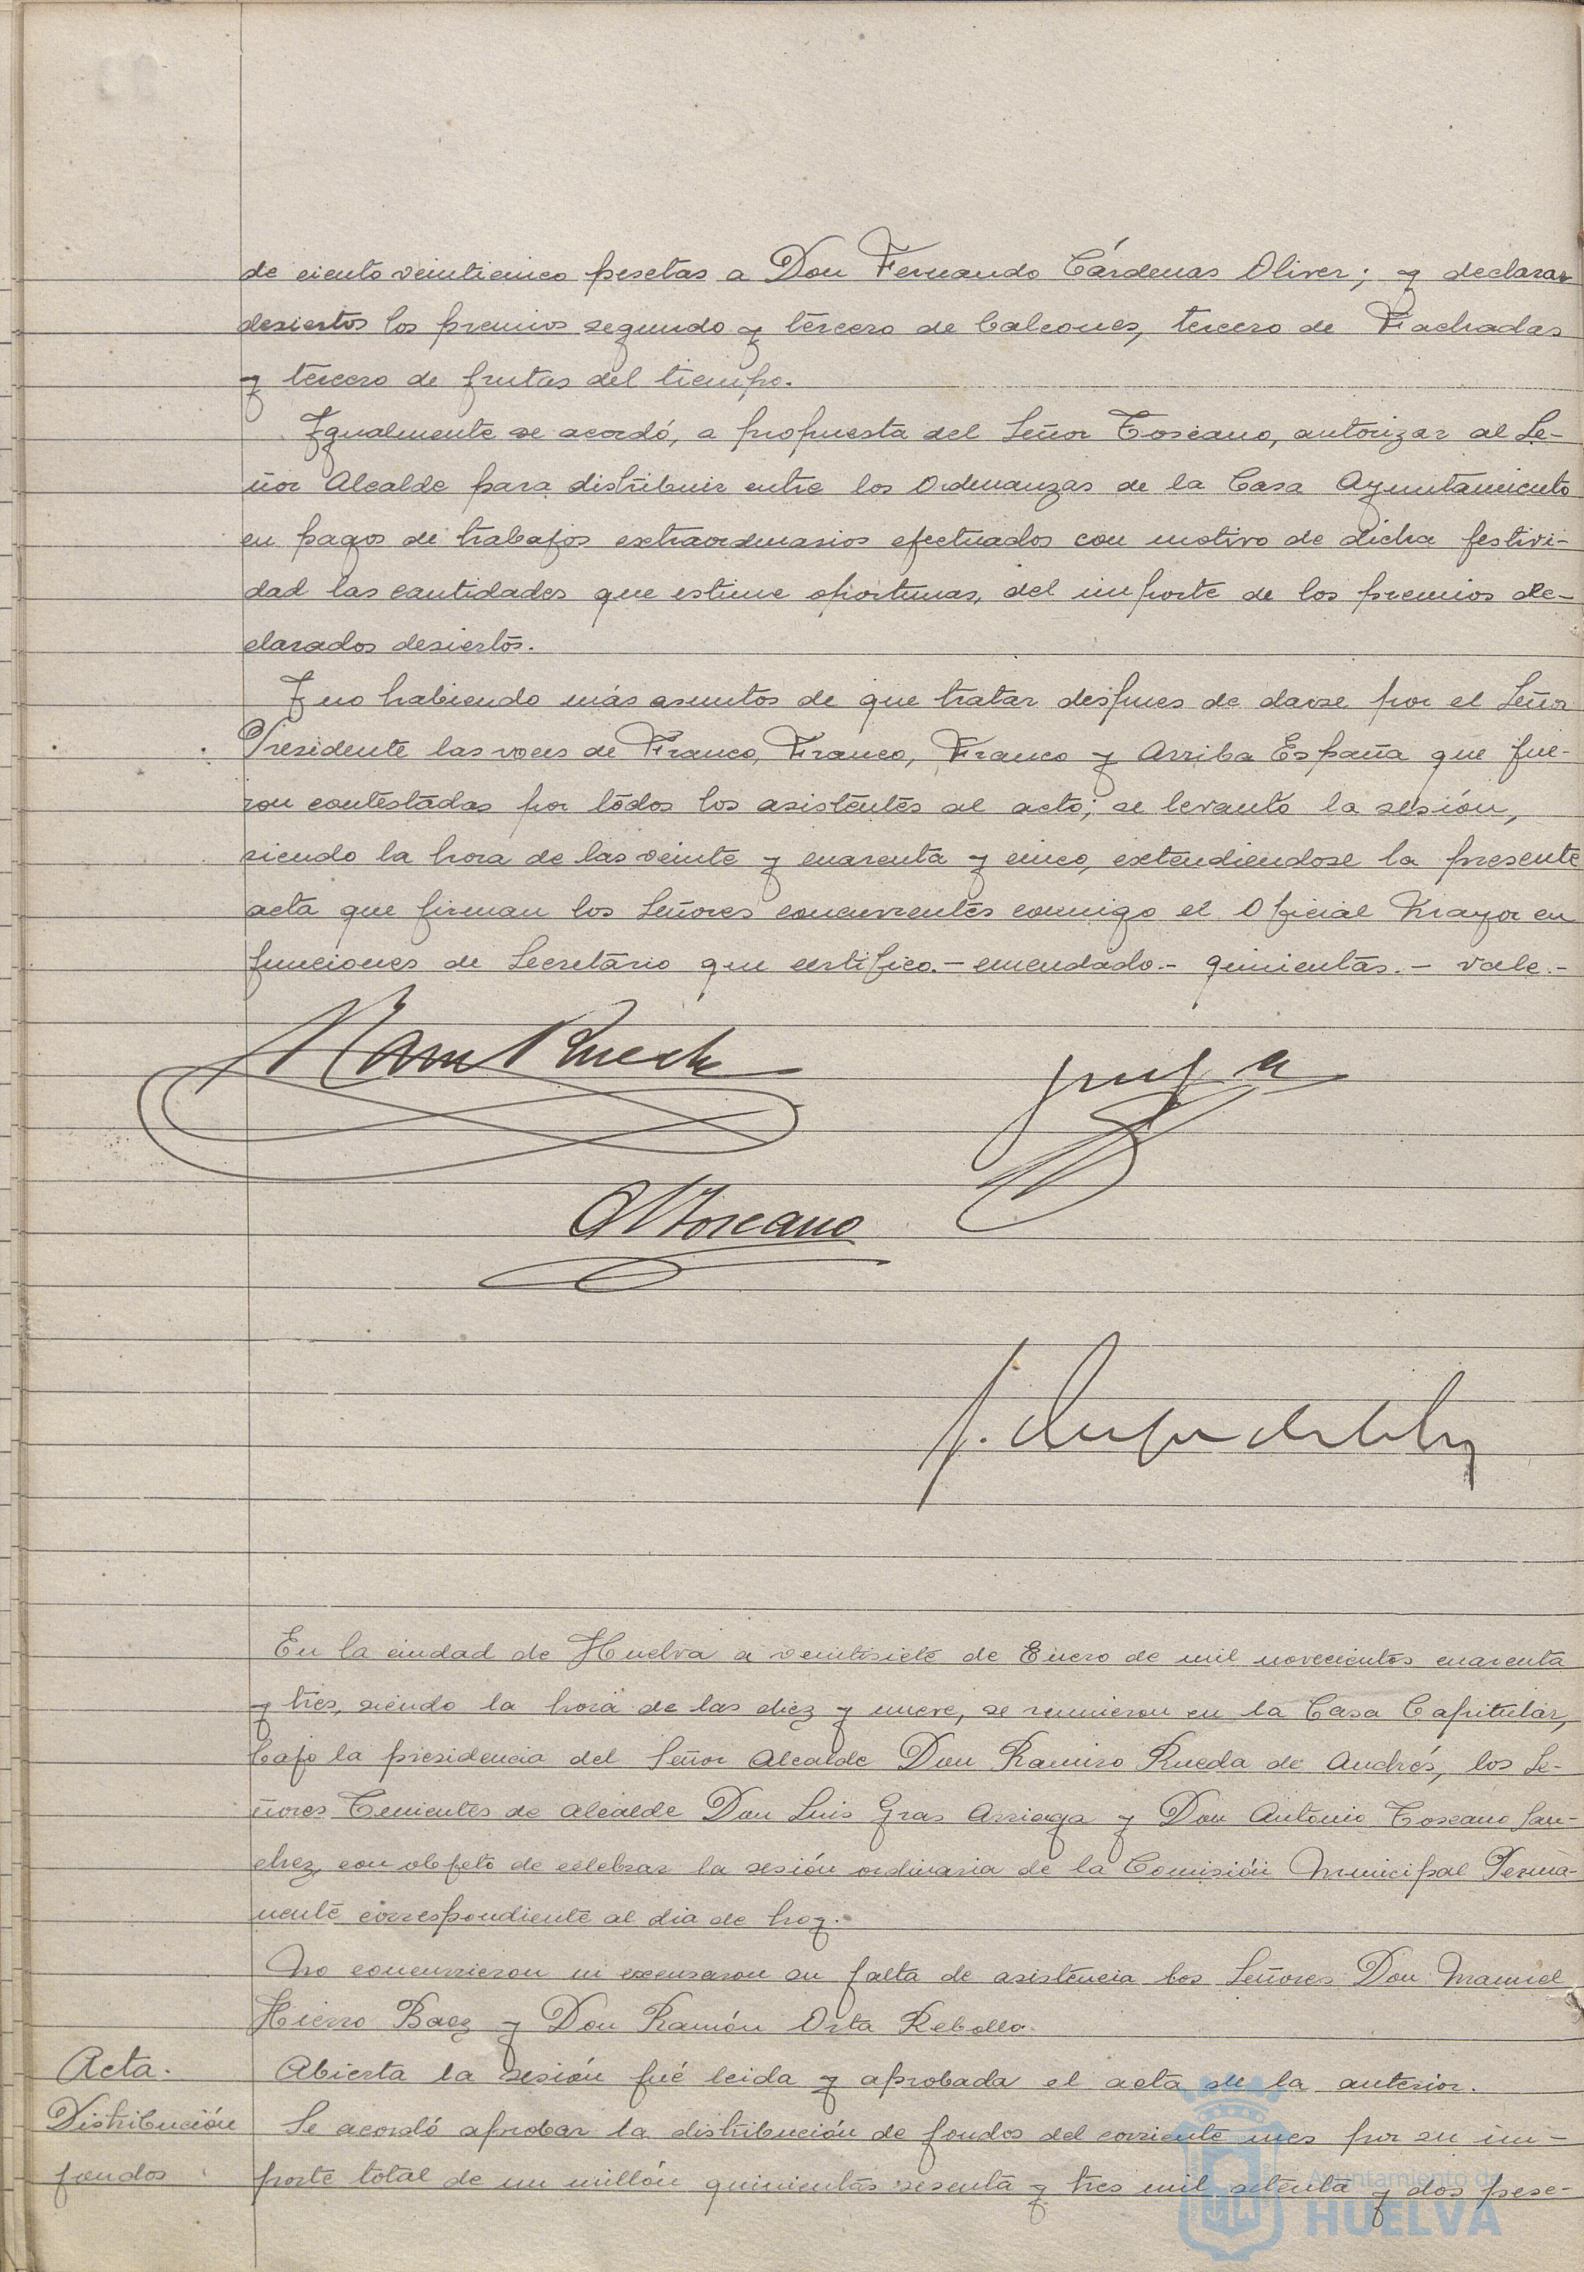 de ciento veinticinco pesetas a Don Fernando Cárdenas Oliver; y declarar
desiertos los premios segundo y tercero de balcones, tercero de Fachadas
y tercero de frutas del tiempo.
Igualmente se acordó, a propuesta del Señor Toscano, autorizar al Se-
ñor Alcalde para distribuir entre los Ordenanzas de la Casa Ayuntamiento
en pagos de trabajos extraordinarios efectuados con motivo de dicha festivi-
dad las cantidades que estime oportunas, del importe de los premios de-
clarados desiertos.
Y no habiendo más asuntos de que tratar despues de darse por el Señor
Presidente las voces de Franco, Franco, Franco y Arriba España que fue-
ron contestadas por todos los asistentes al acto; se levantó la sesión,
siendo la hora de las veinte y cuarenta y cinco, extendiendose la presente
acta que firman los Señores concurrentes conmigo el Oficial Mayor en
funciones de Secretario que certifico.- enmendado.- quinientas.- vale.-
Toscano
En la ciudad de Huelva a veintisiete de Enero de mil novecientos cuarenta
y tres, siendo la hora de las diez y nueve, se reunieron en la Casa Capitular,
bajo la presidencia del Señor Alcalde Don Ramiro Rueda de Andrés, los Se-
ñores Tenientes de Alcalde Don Luis Gras Arriaga y Don Antonio Toscano San-
chez, con objeto de celebrar la sesión ordinaria de la Comisión Municipal Perma-
nente correspondiente al dia de hoy.
No concurrieron ni excusaron su falta de asistencia los Señores Don Manuel
Hierro Baez y Don Ramón Orta Rebollo.
Acta. Abierta la sesión fué leida y aprobada el acta de la anterior.
Distribución Se acordó aprobar la distribución de fondos del corriente mes por su im-
fondos porte total de un millón quinientas sesenta y tres mil setenta y dos pese-
Ayuntamiento de
HUELVA